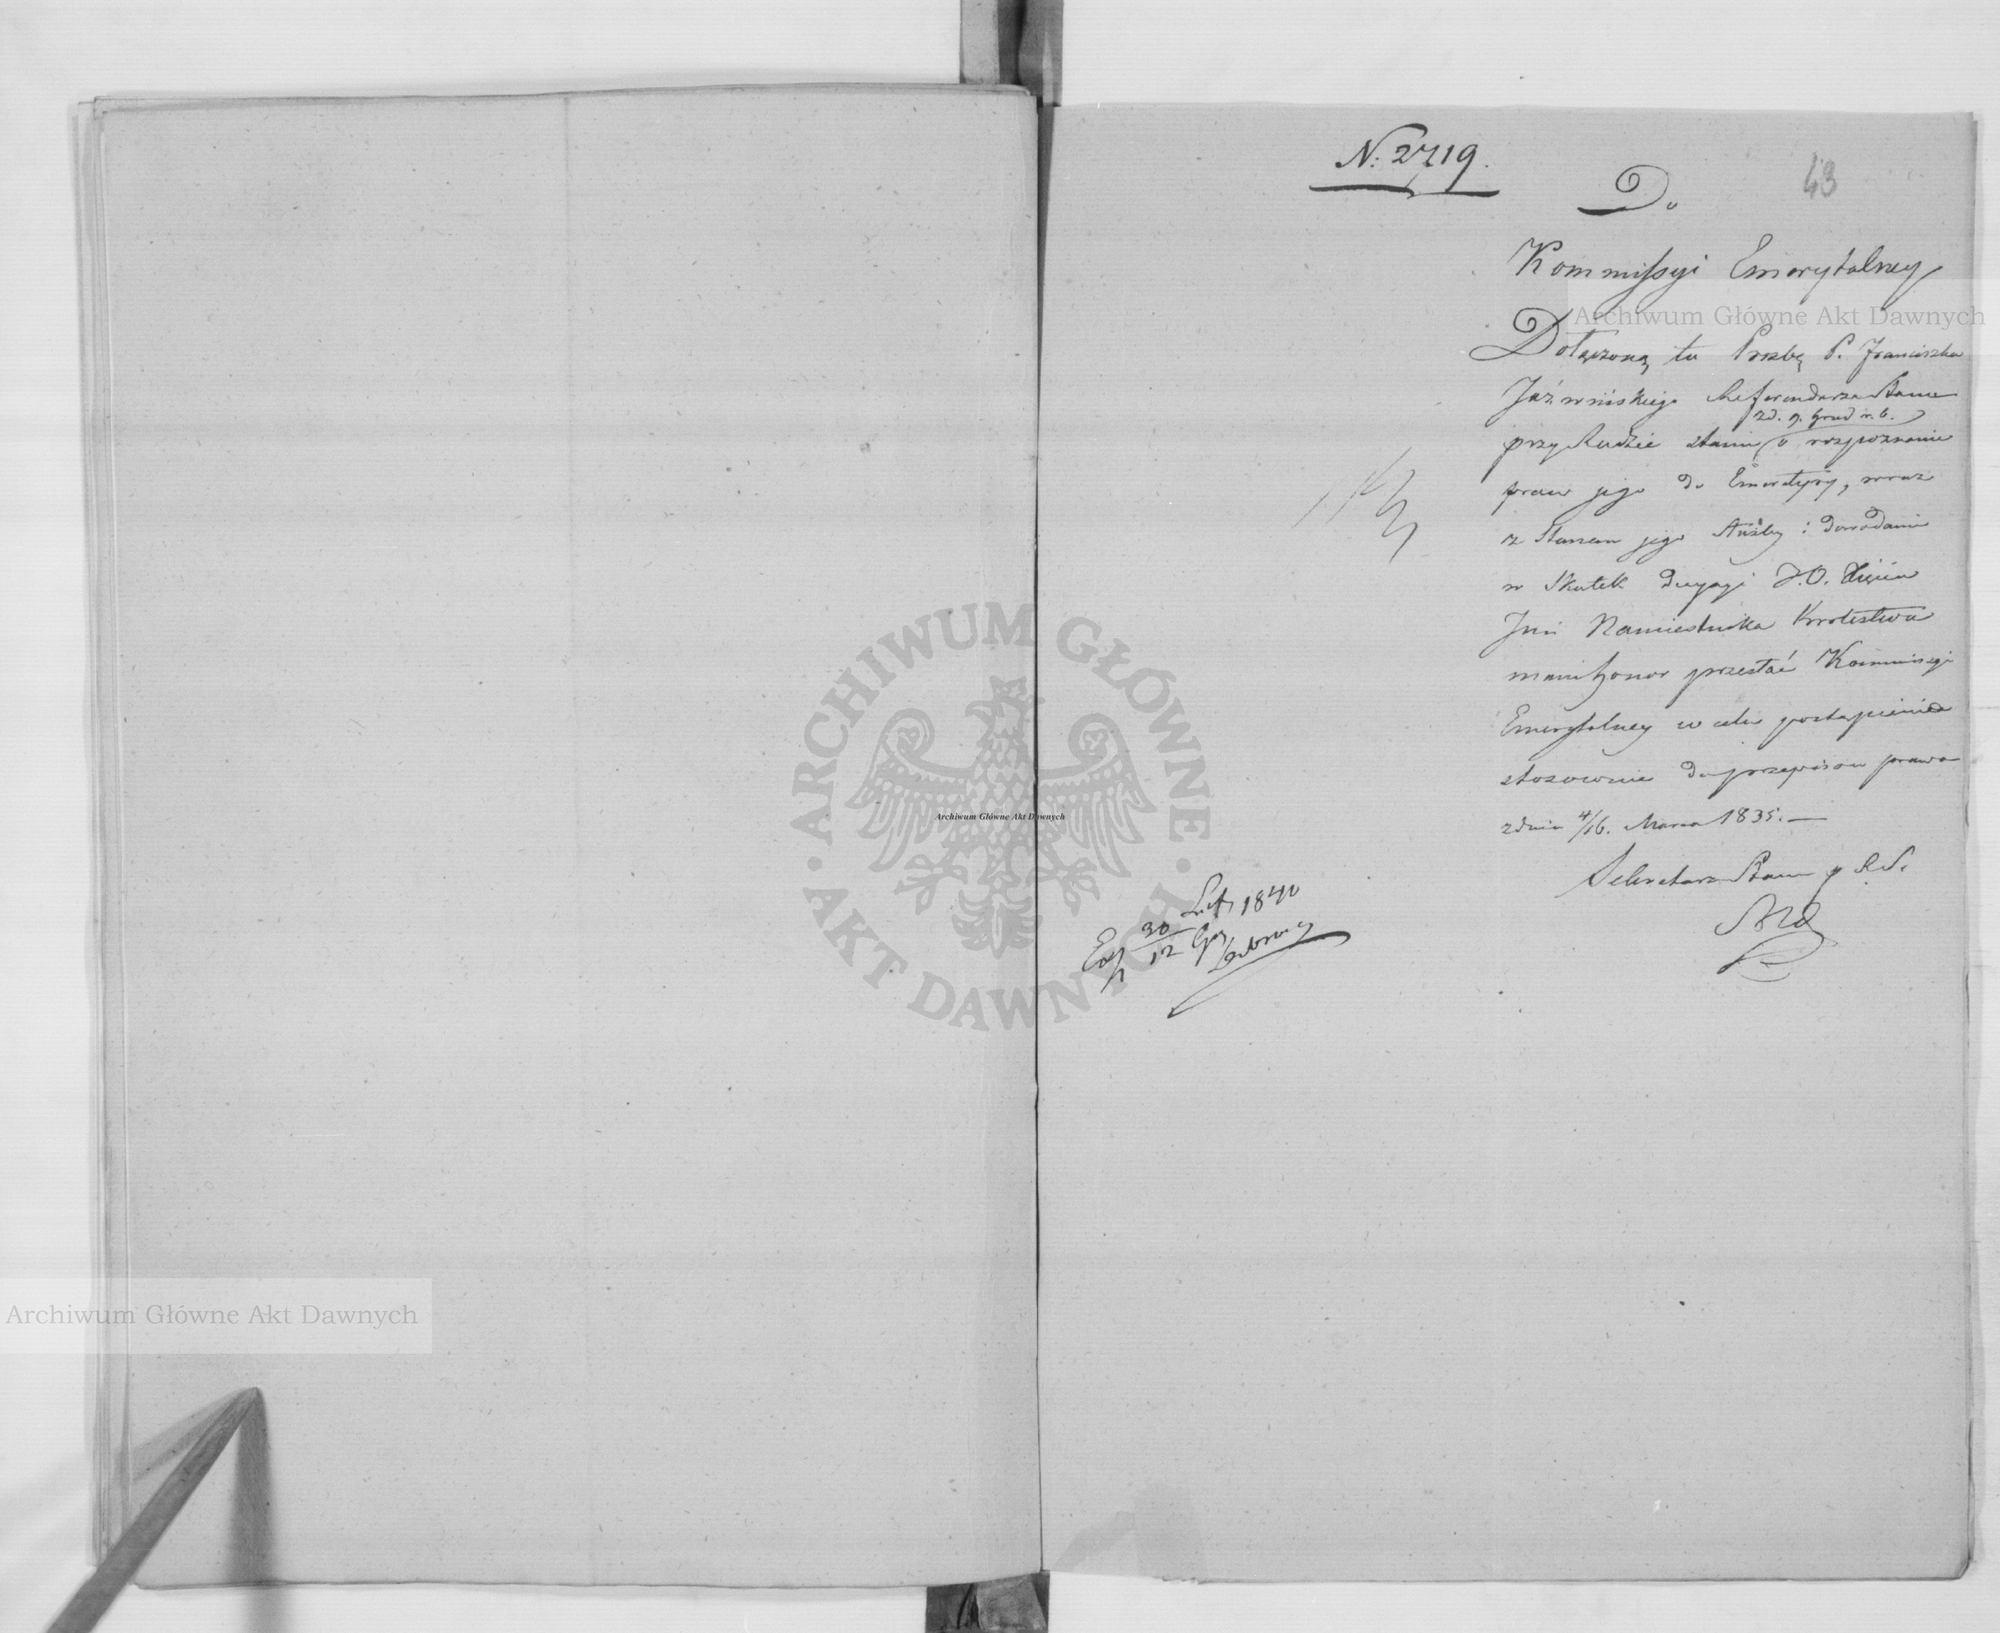 N: 2719.
43
Do
Kommissyi Emerytalney
Archiwum Główne Akt Dawnych
Dołączoną tu Prozbę P. Franciszka
Jaźwińskiego Referendarza Stanu
zd. 9. Grud r. b.
przy Radzie stanu o rozpoznanie
praw jego do Emerytury, wraz
z Stanem jego Służby i dowodami
w Skutek decyzyi J.O. Xięcia
Jmci Namiestnika Krolestwa
mam honor przesłać Kommissyi
Emerytalney w celu postąpienia
stosownie do przepisow prawa
z dnia 4/16. Marca 1835. —
Sekretarz Stanu p R. S.
30 1840
12
ARCHIWUM GŁÓWNE · AKT DAWNYCH ·
Archiwum Główne Akt Dawnych
Archiwum Główne Akt Dawnych